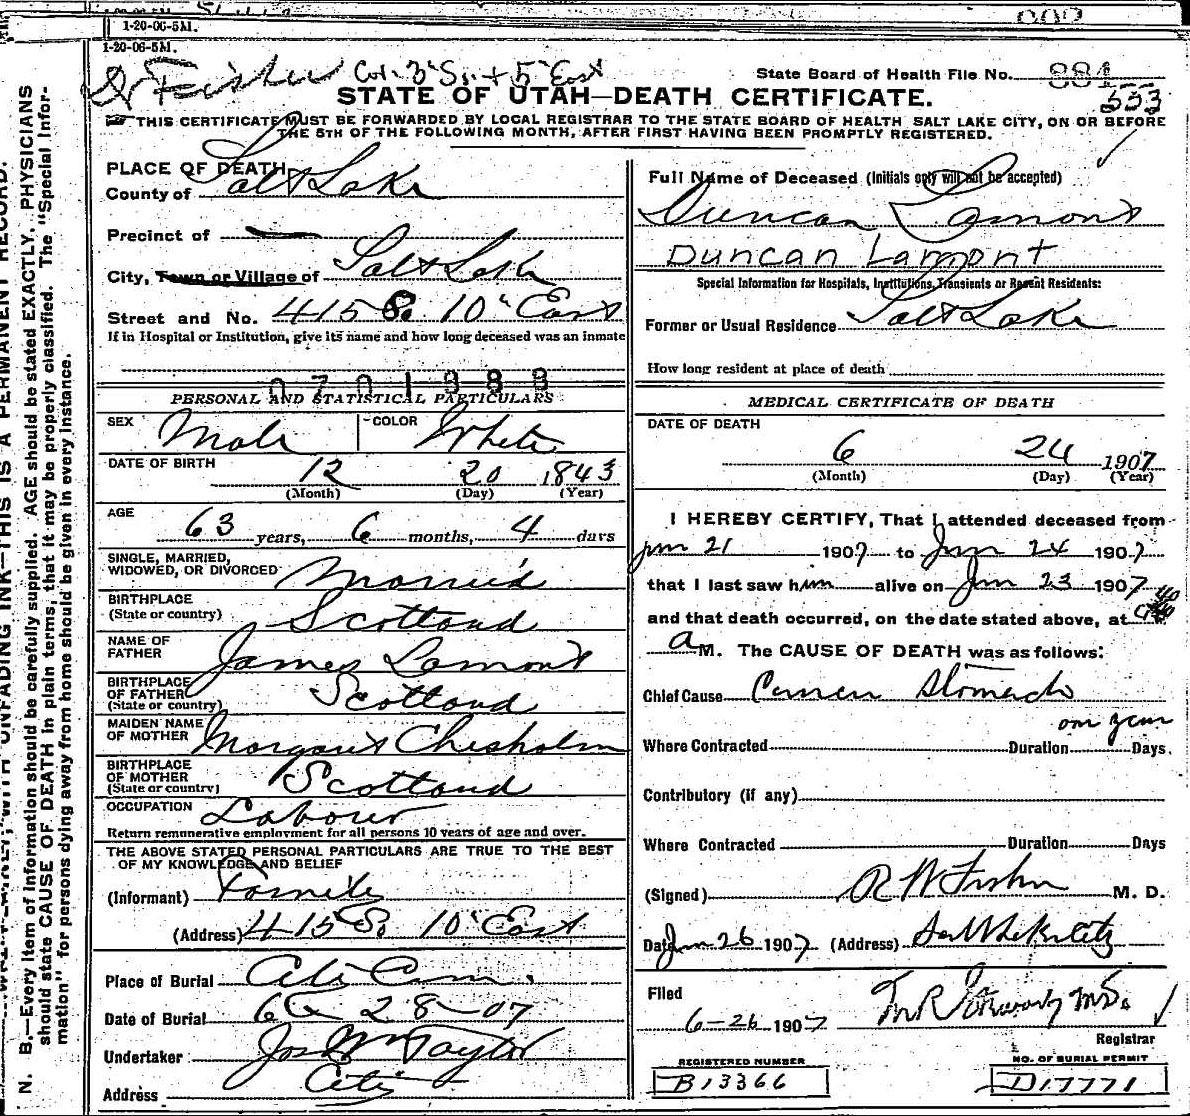 1-20-06-5M.
1-20-06-5M.
Dr Fisher Cor. 3 So. + 5 East
State Board of Health File No. 884
533
STATE OF UTAH—DEATH CERTIFICATE.
THIS CERTIFICATE MUST BE FORWARDED BY LOCAL REGISTRAR TO THE STATE BOARD OF HEALTH SALT LAKE CITY, ON OR BEFORE
THE 5TH OF THE FOLLOWING MONTH, AFTER FIRST HAVING BEEN PROMPTLY REGISTERED.
N. B.—Every item of information should be carefully supplied. AGE should be stated EXACTLY. PHYSICIANS
should state CAUSE OF DEATH in plain terms, that it may be properly classified. The "Special Infor-
mation" for persons dying away from home should be given in every instance.
PLACE OF DEATH
County of Salt Lake
Precinct of
City, Town or Village of Salt Lake
Street and No. 415 So. 10" East
If in Hospital or Institution, give its name and how long deceased was an inmate
0701988
PERSONAL AND STATISTICAL PARTICULARS
SEX Male COLOR White
DATE OF BIRTH 12 20 1843
(Month) (Day) (Year)
AGE
63 years, 6 months, 4 days
SINGLE, MARRIED,
WIDOWED, OR DIVORCED Married
BIRTHPLACE
(State or country) Scotland
NAME OF
FATHER James Lamont
BIRTHPLACE
OF FATHER
(State or country) Scotland
MAIDEN NAME
OF MOTHER Margaret Chisholm
BIRTHPLACE
OF MOTHER
(State or country) Scotland
OCCUPATION Labour
Return remunerative employment for all persons 10 years of age and over.
THE ABOVE STATED PERSONAL PARTICULARS ARE TRUE TO THE BEST
OF MY KNOWLEDGE AND BELIEF
(Informant) Family
(Address) 415 So. 10" East
Place of Burial City Cem.
Date of Burial 6 28-07
Undertaker Jos Wm Taylor
Address City
Full Name of Deceased (Initials only will not be accepted)
Duncan Lamont
Duncan Lamont
Special Information for Hospitals, Institutions, Transients or Recent Residents:
Former or Usual Residence Salt Lake
How long resident at place of death
MEDICAL CERTIFICATE OF DEATH
DATE OF DEATH
6 24 1907
(Month) (Day) (Year)
I HEREBY CERTIFY, That I attended deceased from
Jun 21 1907 to Jun 24 1907
that I last saw him alive on Jun 23 1907
and that death occurred, on the date stated above, at
a M. The CAUSE OF DEATH was as follows:
Chief Cause Cancer Stomach
one year
Where Contracted Duration Days.
Contributory (if any)
Where Contracted Duration Days
(Signed) R W Fisher M. D.
Date Jun 26 1907 (Address) Salt Lake City
Filed
6-26 1907 M.D.
Registrar
REGISTERED NUMBER
B13366
NO. OF BURIAL PERMIT
D17771